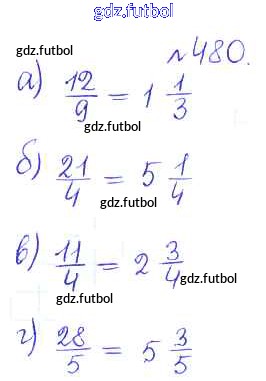 gdz.futbol
№480.
gdz.futbol
а) 12/9 = 1 1/3
gdz.futbol
б) 21/4 = 5 1/4
gdz.futbol
в) 11/4 = 2 3/4
gdz.futbol
gdz.futbol
г) 28/5 = 5 3/5
gdz.futbol